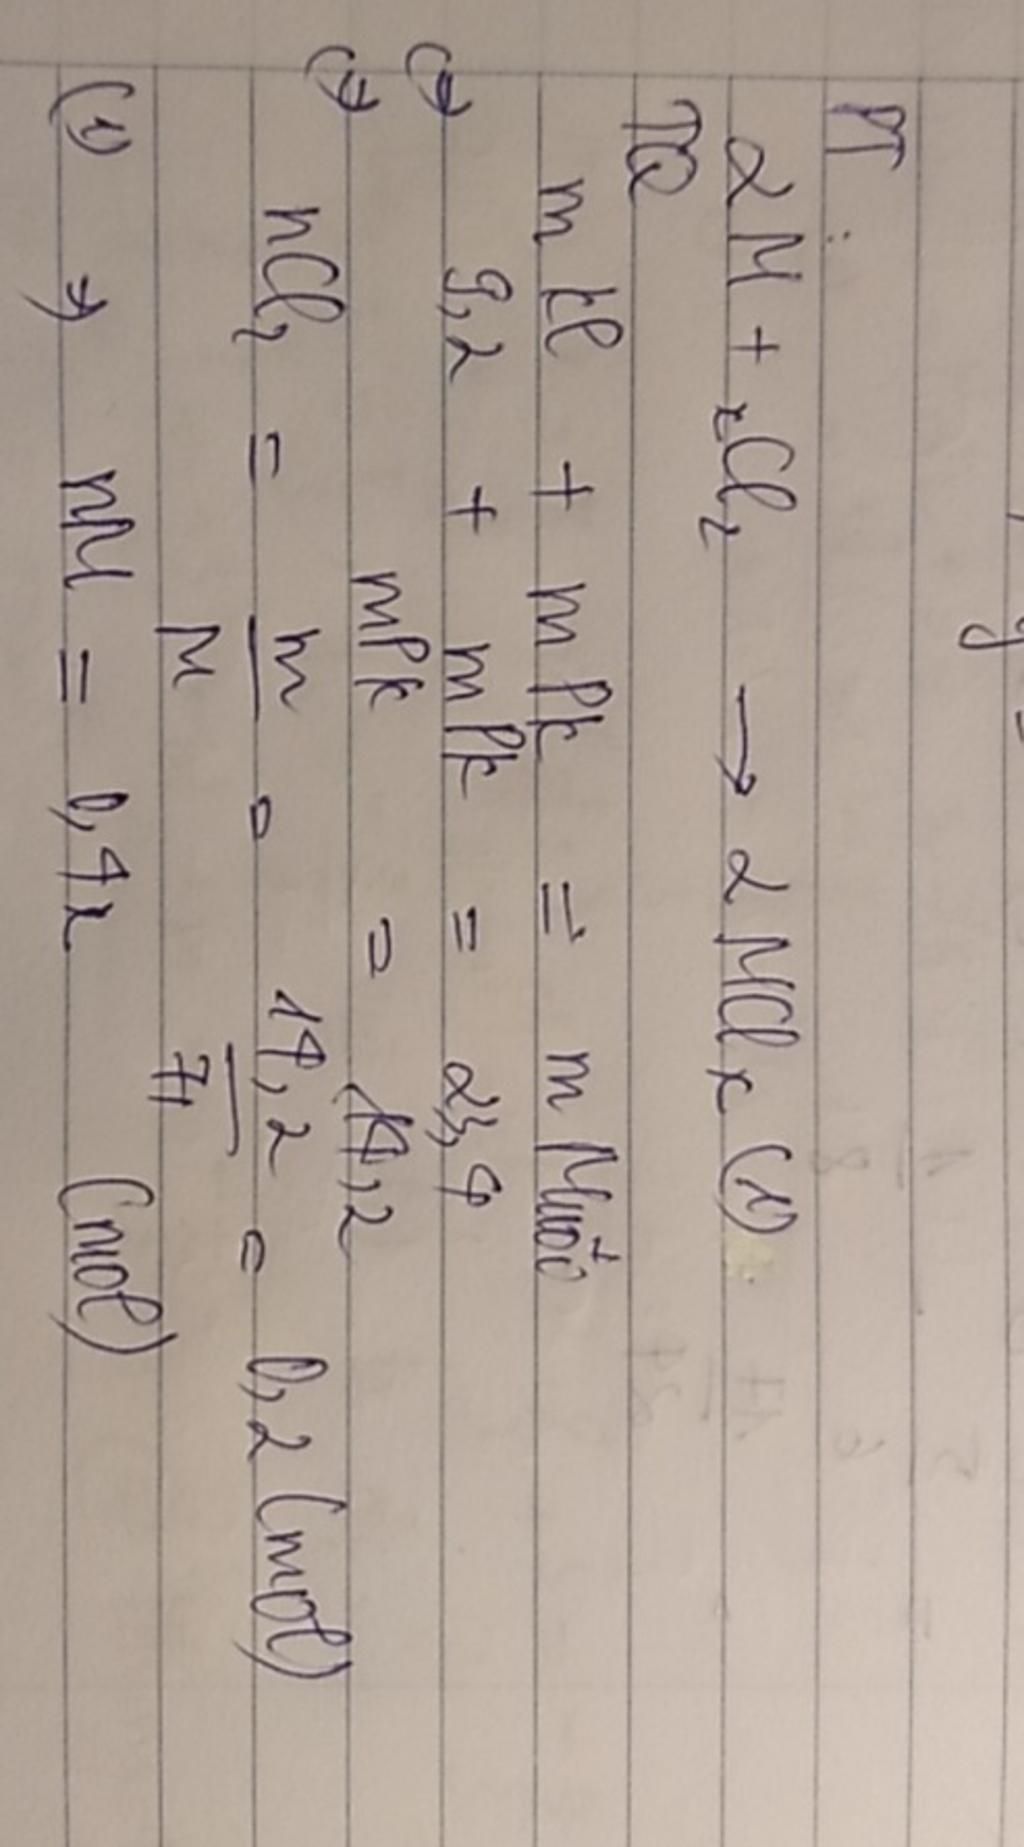 PT:
2M + xCl₂ → 2MClx (1)
TQ
m kl + m Pk = m Muối
(→ 9,2 + mPk = 23,4
(→ mPk = 14,2
nCl₂ = m/M = 14,2/71 = 0,2 (mol)
(1) → nM = 0,4x (mol)